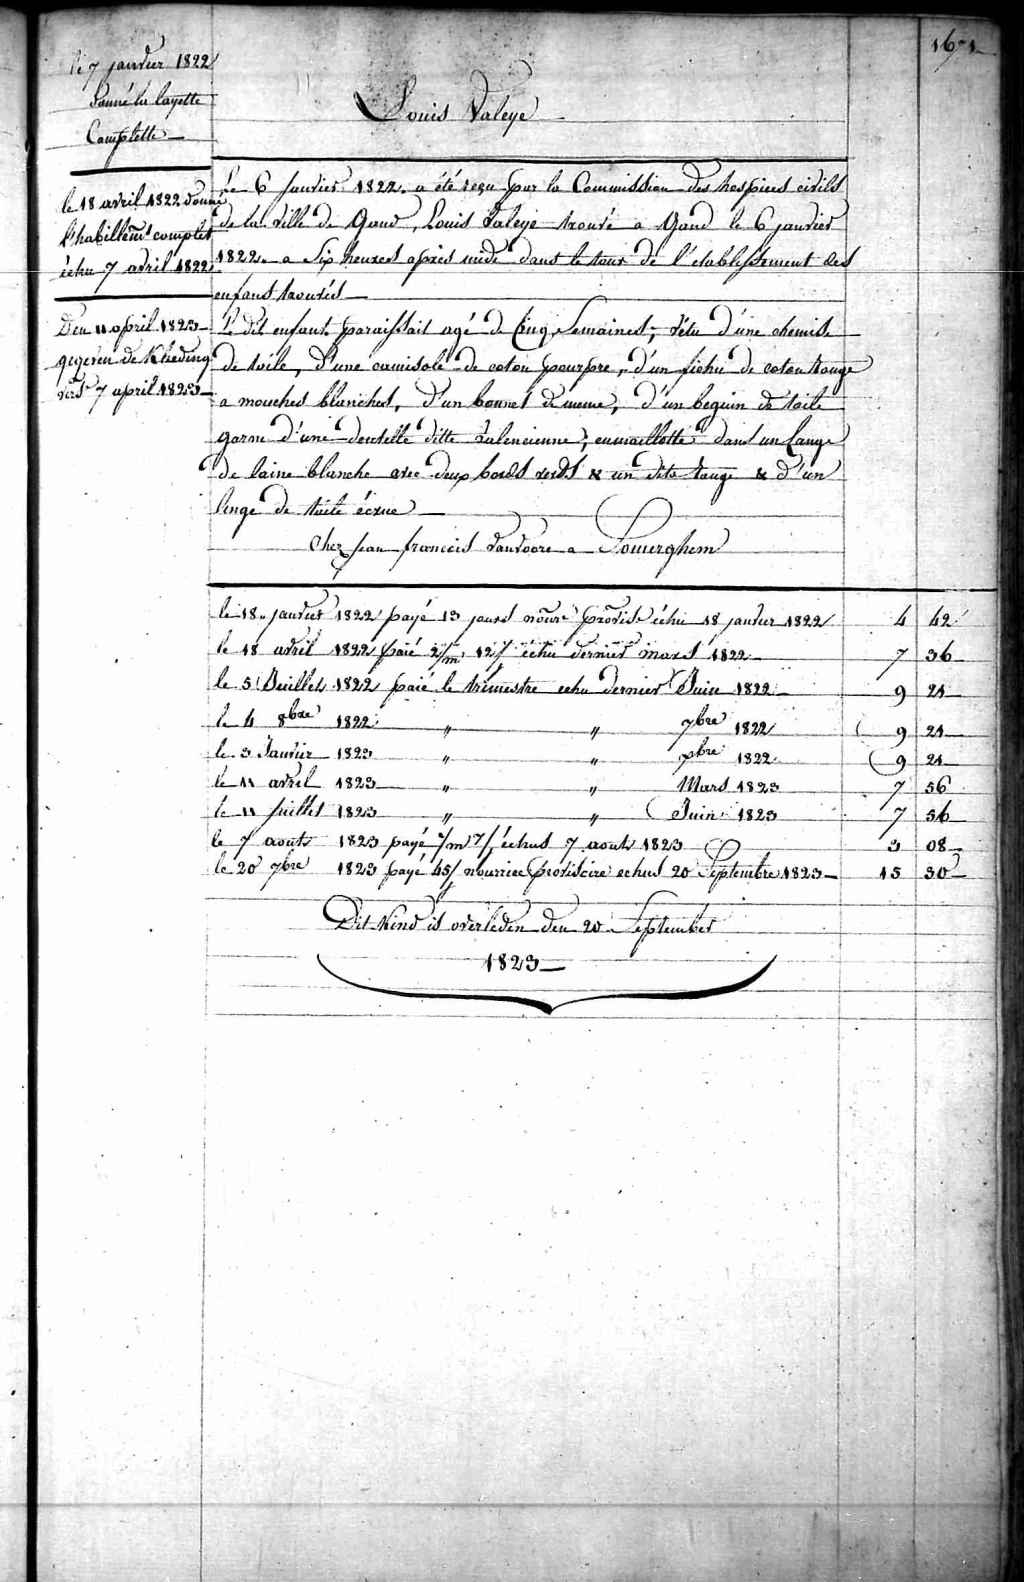 1671
le 7 janvier 1822
Donné la layette
Complette
Louis Valeye
le 18 avril 1822 donné
l'habillemt complet
échu 7 avril 1822
Den 11 april 1823
gegeven de Kleeding
vers 7 april 1823
Le 6 Janvier 1822 a été reçu par la Commission des hospices civils
de la ville de Gand, Louis Valeye trouvé a Gand le 6 janvier
1822 a Six heures après midi dans le tour de l'établissement des
enfans trouvés
Le dit enfant paraissait agé de Cinq Semaines, vétu d'une chemise
de toile, d'une camisole de coton pourpre, d'un fichu de coton rouge
a mouches blanches, d'un bonnet de meme, d'un beguin de toile
garni d'une dentelle ditte Valencienne, enmaillotté dans un Lange
de laine blanche avec deux bords verds & un dito rouge & d'un
linge de toile écrue
chez jean francois vandvore a Somerghem
le 18 janvier 1822 payé 13 jours nourre provise échu 18 janvier 1822 4 42
le 18 avril 1822 paié 2/m 12/j échu dernier mars 1822 7 36
le 5 Juillet 1822 paié le trimestre echu dernier Juin 1822 9 21
le 4 8bre 1822 " " 7bre 1822 9 21
le 3 Janvier 1823 " " 1822 9 21
le 11 avril 1823 " " Mars 1823 7 56
le 11 juillet 1823 " " Juin 1823 7 56
le 7 aout 1823 payé 1/m 7/j échus 7 aout 1823 3 08
le 20 7bre 1823 payé 45/j nourrice provisoire echus 20 Septembre 1823 15 30
Dit Kind is overleden den 20 September
1823